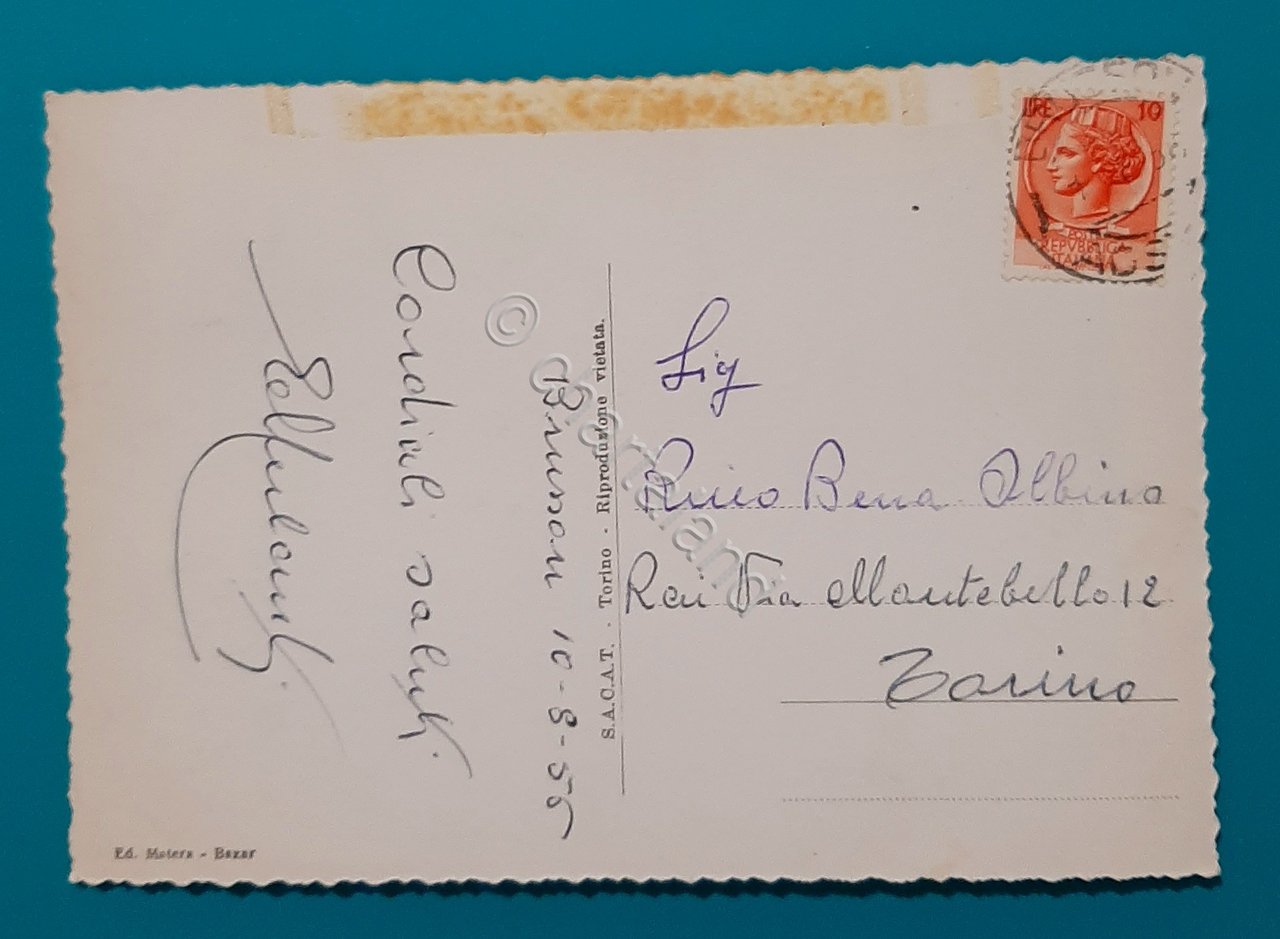 Brusson 10-8-55
Cordiali saluti
S.A.C.A.T. - Torino - Riproduzione vietata.
Ed. Matera - Bazar
LIRE 10
POSTE
REPVBBLICA
ITALIANA
Sig
Bena Albino
Rai Via Montebello 12
Torino
©